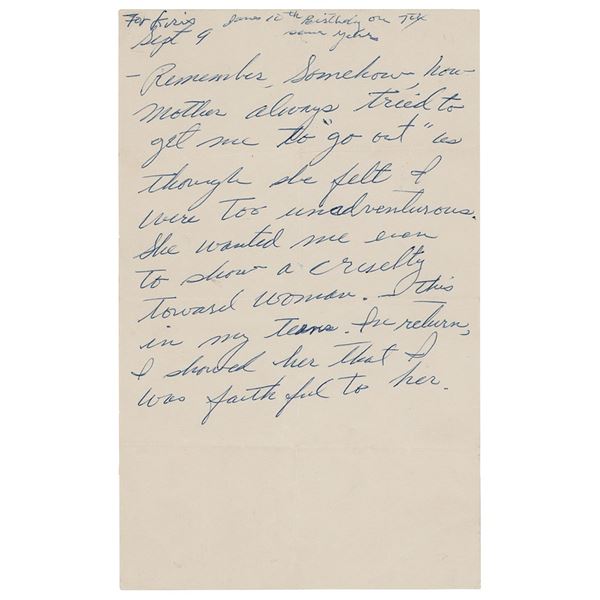 For
Sept 9
Janes 10th Birthday on 7th
same year
- Remember, somehow, how
mother always tried to
get me to "go out" as
though she felt I
were too unadventurous.
She wanted me even
to show a cruelty
toward woman. - This
in my teens. In return,
I showed her that I
was faithful to her.